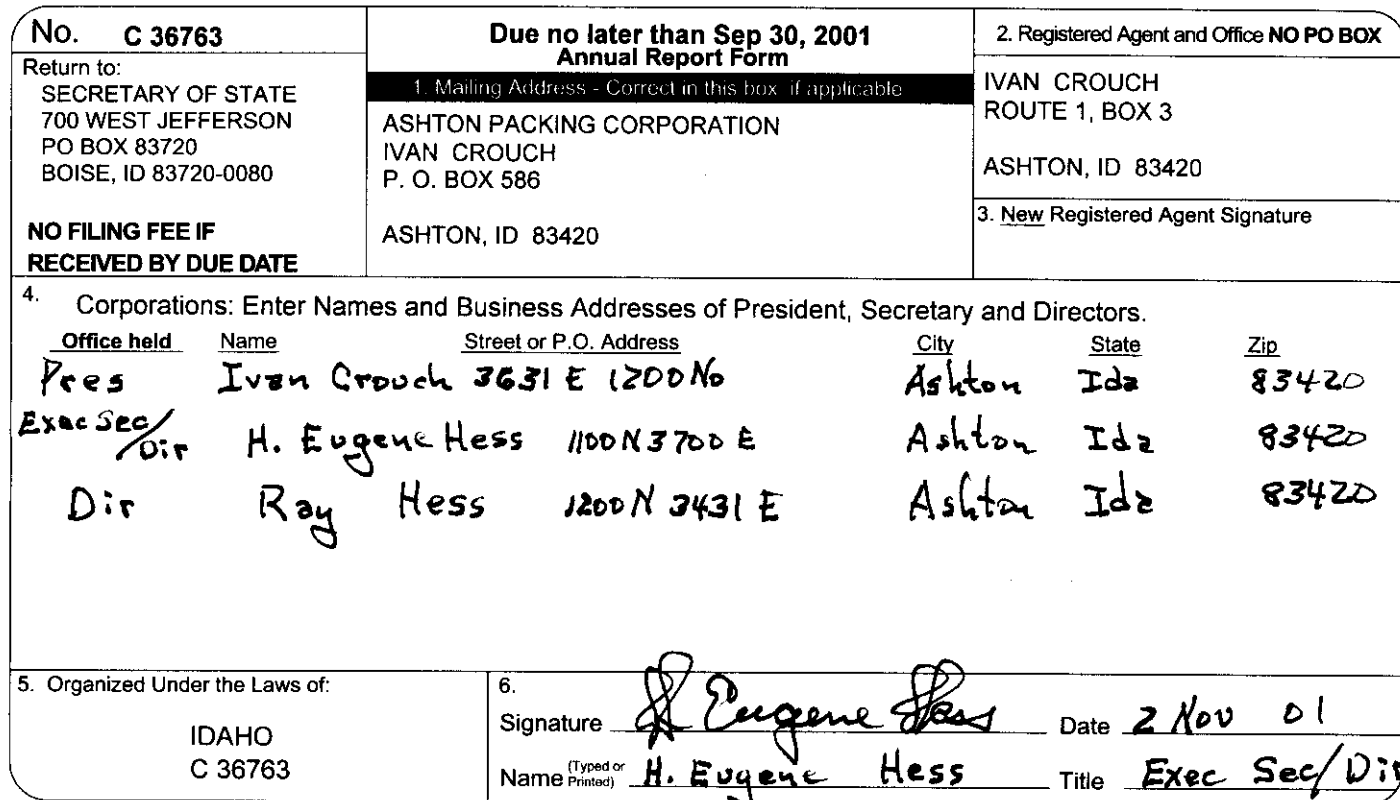 No. C 36763
Return to:
SECRETARY OF STATE
700 WEST JEFFERSON
PO BOX 83720
BOISE, ID 83720-0080
NO FILING FEE IF
RECEIVED BY DUE DATE
Due no later than Sep 30, 2001
Annual Report Form
1. Mailing Address - Correct in this box if applicable
ASHTON PACKING CORPORATION
IVAN CROUCH
P. O. BOX 586
ASHTON, ID 83420
2. Registered Agent and Office NO PO BOX
IVAN CROUCH
ROUTE 1, BOX 3
ASHTON, ID 83420
3. New Registered Agent Signature
4. Corporations: Enter Names and Business Addresses of President, Secretary and Directors.
Office held Name Street or P.O. Address City State Zip
Pres Ivan Crouch 3631 E 1200 No Ashton Ida 83420
Exec Sec/Dir H. Eugene Hess 1100 N 3700 E Ashton Ida 83420
Dir Ray Hess 1200 N 3431 E Ashton Ida 83420
5. Organized Under the Laws of:
IDAHO
C 36763
6.
Signature H Eugene Hess Date 2 Nov 01
Name (Typed or Printed) H. Eugene Hess Title Exec Sec/Dir